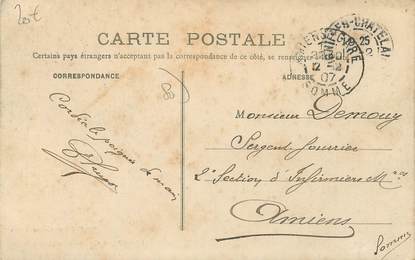 20€
CARTE POSTALE
Certains pays étrangers n'acceptant pas la correspondance de ce côté, se renseigner
CORRESPONDANCE
ADRESSE
AMIENS GARE
12-2
07
SOMME
CHATELAI
80
Cordiale poignée de main
Monsieur Demouy
Sergent fourrier
2e Section d'Infirmiers Mres
Amiens
Somme